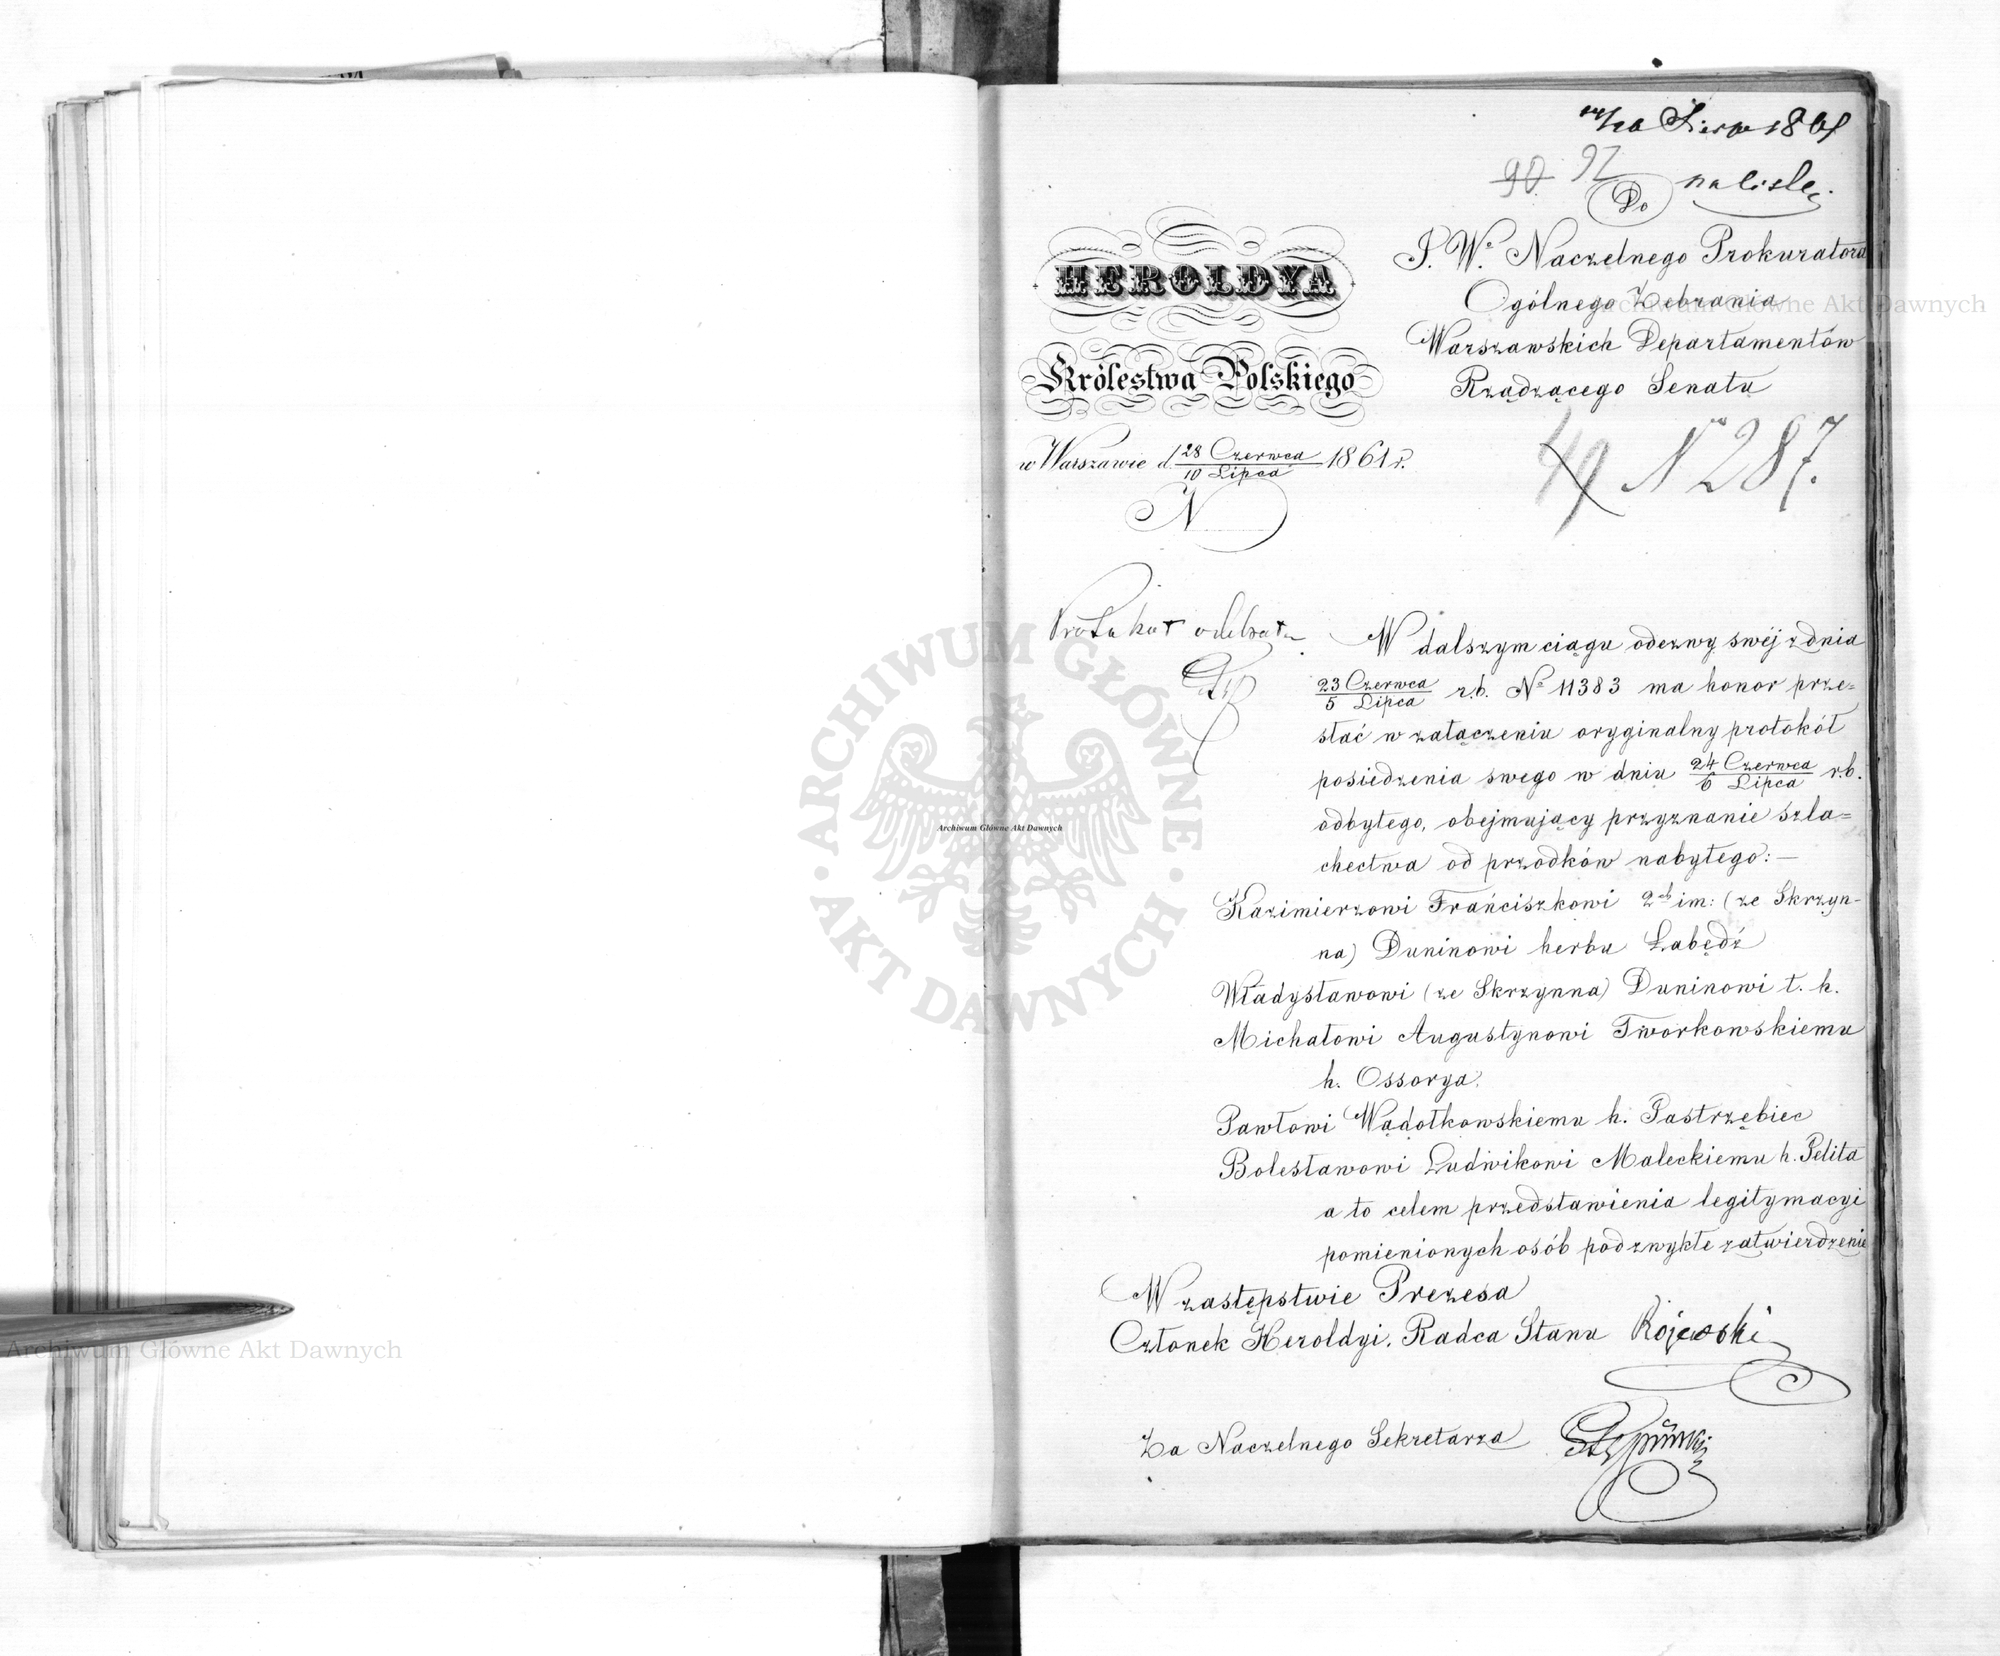 1861
90 92
na liście
Do
J. W.º Naczelnego Prokuratora
Ogólnego Zebrania
Warszawskich Departamentów
Rządzącego Senatu
HEROLDYA
Królestwa Polskiego
w Warszawie d. 28 Czerwca / 10 Lipca 1861 r.
N
49 Nº 287.
Protokuł odebrał
W dalszym ciągu odezwy swéj z dnia
23 Czerwca / 5 Lipca r.b. Nº 11383 ma honor prze=
słać w załączeniu oryginalny protokół
posiedzenia swego w dniu 24 Czerwca / 6 Lipca r.b.
odbytego, obejmujący przyznanie szla=
chectwa od przodków nabytego: —
Kazimierzowi Franciszkowi 2ch im: (ze Skrzyn-
na) Duninowi herbu Łabędź
Władysławowi (ze Skrzynna) Duninowi t. h.
Michałowi Augustynowi Tworkowskiemu
h. Ossorya.
Pawłowi Wądołkowskiemu h. Jastrzębiec
Bolesławowi Ludwikowi Maleckiemu h. Pelita
a to celem przedstawienia legitymacyi
pomienionych osób pod zwykłe zatwierdzenie
W zastępstwie Prezesa
Członek Heroldyi, Radca Stanu
Za Naczelnego Sekretarza
Archiwum Główne Akt Dawnych
ARCHIWUM GŁÓWNE
AKT DAWNYCH
Archiwum Główne Akt Dawnych
Archiwum Główne Akt Dawnych